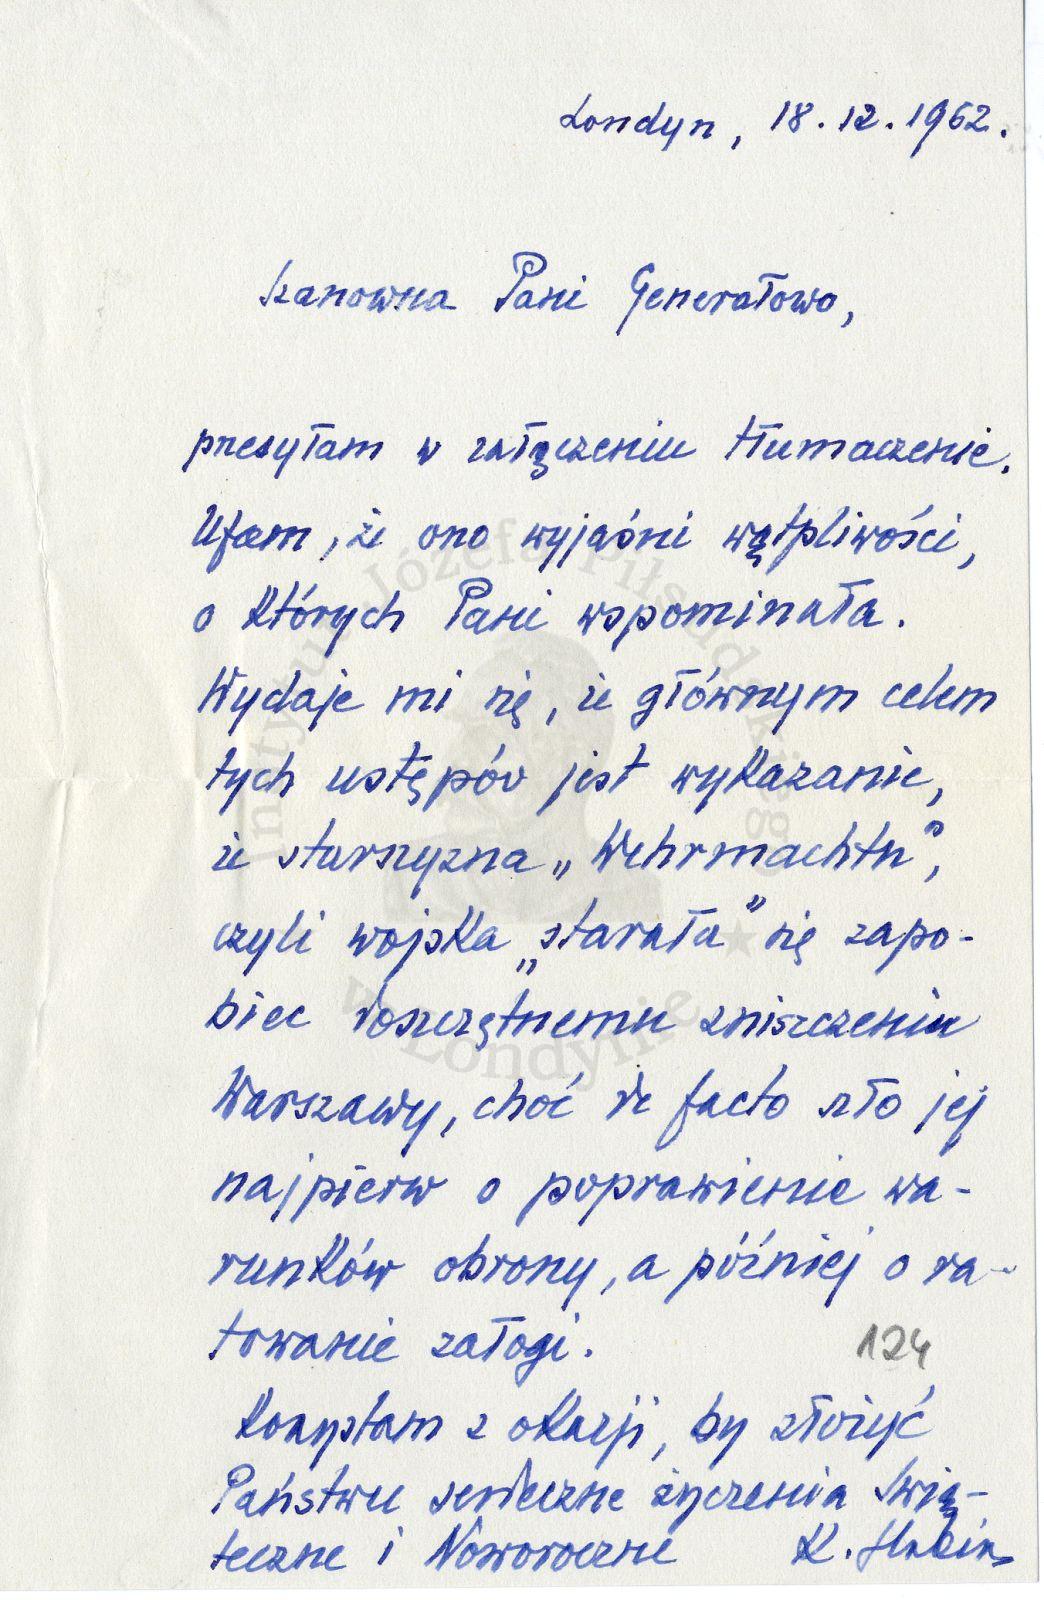 Londyn, 18.12.1962.
Szanowna Pani Generałowo,
przesyłam w załączeniu tłumaczenie.
Ufam, że ono wyjaśni wątpliwości,
o których Pani wspominała.
Wydaje mi się, że głównym celem
tych ustępów jest wykazanie,
że starszyzna „Wehrmachtu”,
czyli wojska „starała” się zapo-
biec doszczętnemu zniszczeniu
Warszawy, choć de facto szło jej
najpierw o poprawienie wa-
runków obrony, a później o ra-
towanie załogi.
124
Korzystam z okazji, by złożyć
Państwu serdeczne życzenia Świą-
teczne i Noworoczne K.
Instytut Józefa Piłsudskiego
w Londynie